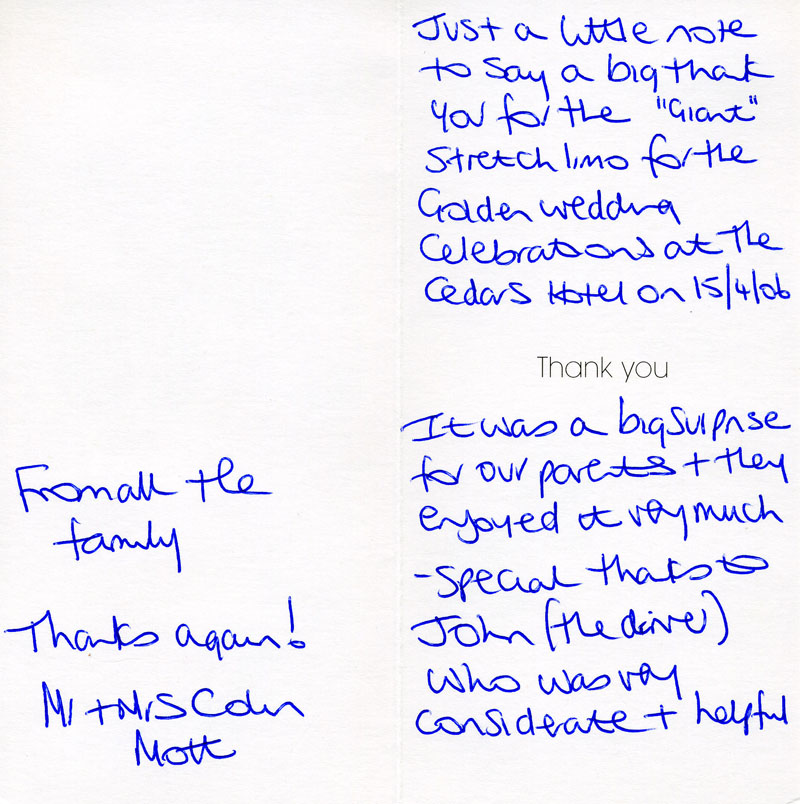 Just a little note
to say a big thank
you for the "Giant"
Stretch limo for the
Golden wedding
Celebrations at The
Cedars Hotel on 15/4/06
Thank you
It was a big surprise
for our parents + they
enjoyed it very much
- Special thanks to
John (the driver)
who was very
considerate + helpful
From all the
family
Thanks again!
Mr + Mrs Colin
Mott